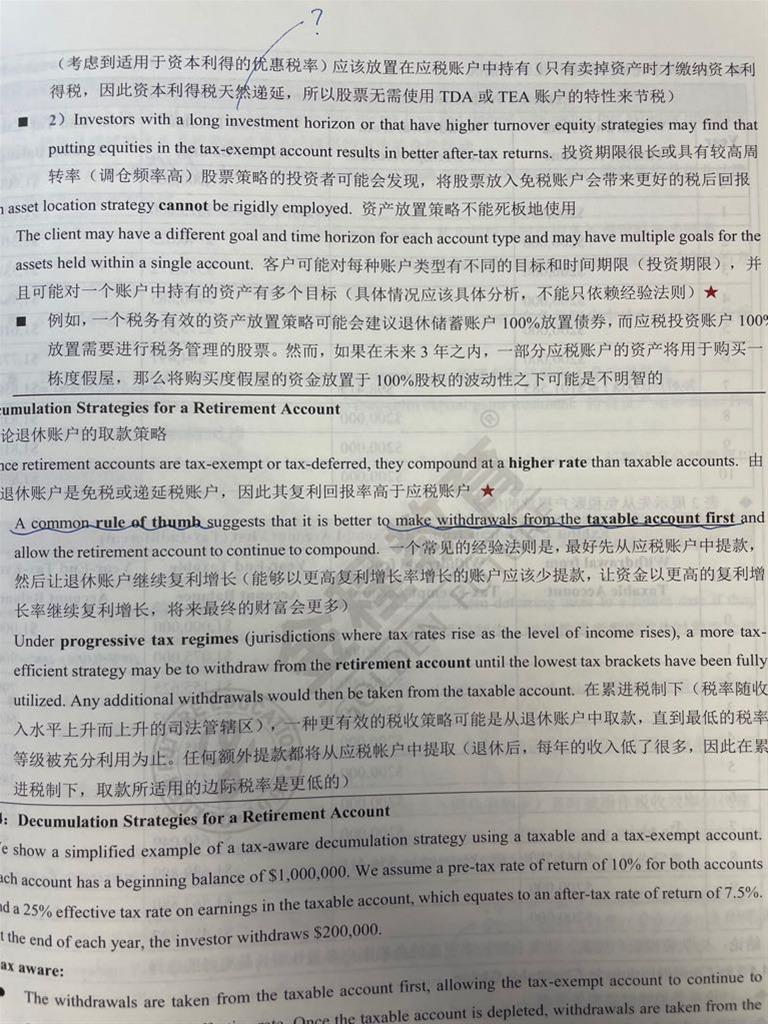 ?
（考虑到适用于资本利得的优惠税率）应该放置在应税账户中持有（只有卖掉资产时才缴纳资本利
得税，因此资本利得税天然递延，所以股票无需使用 TDA 或 TEA 账户的特性来节税）
■ 2）Investors with a long investment horizon or that have higher turnover equity strategies may find that
putting equities in the tax-exempt account results in better after-tax returns. 投资期限很长或具有较高周
转率（调仓频率高）股票策略的投资者可能会发现，将股票放入免税账户会带来更好的税后回报
asset location strategy cannot be rigidly employed. 资产放置策略不能死板地使用
The client may have a different goal and time horizon for each account type and may have multiple goals for the
assets held within a single account. 客户可能对每种账户类型有不同的目标和时间期限（投资期限），并
且可能对一个账户中持有的资产有多个目标（具体情况应该具体分析，不能只依赖经验法则）★
■ 例如，一个税务有效的资产放置策略可能会建议退休储蓄账户 100%放置债券，而应税投资账户 100%
放置需要进行税务管理的股票。然而，如果在未来 3 年之内，一部分应税账户的资产将用于购买一
栋度假屋，那么将购买度假屋的资金放置于 100%股权的波动性之下可能是不明智的
cumulation Strategies for a Retirement Account
论退休账户的取款策略
nce retirement accounts are tax-exempt or tax-deferred, they compound at a higher rate than taxable accounts. 由
退休账户是免税或递延税账户，因此其复利回报率高于应税账户 ★
A common rule of thumb suggests that it is better to make withdrawals from the taxable account first and
allow the retirement account to continue to compound. 一个常见的经验法则是，最好先从应税账户中提款，
然后让退休账户继续复利增长（能够以更高复利增长率增长的账户应该少提款，让资金以更高的复利增
长率继续复利增长，将来最终的财富会更多）
Under progressive tax regimes (jurisdictions where tax rates rise as the level of income rises), a more tax-
efficient strategy may be to withdraw from the retirement account until the lowest tax brackets have been fully
utilized. Any additional withdrawals would then be taken from the taxable account. 在累进税制下（税率随收
入水平上升而上升的司法管辖区），一种更有效的税收策略可能是从退休账户中取款，直到最低的税率
等级被充分利用为止。任何额外提款都将从应税帐户中提取（退休后，每年的收入低了很多，因此在累
进税制下，取款所适用的边际税率是更低的）
4: Decumulation Strategies for a Retirement Account
e show a simplified example of a tax-aware decumulation strategy using a taxable and a tax-exempt account.
ach account has a beginning balance of $1,000,000. We assume a pre-tax rate of return of 10% for both accounts
nd a 25% effective tax rate on earnings in the taxable account, which equates to an after-tax rate of return of 7.5%.
t the end of each year, the investor withdraws $200,000.
ax aware:
The withdrawals are taken from the taxable account first, allowing the tax-exempt account to continue to
Once the taxable account is depleted, withdrawals are taken from the